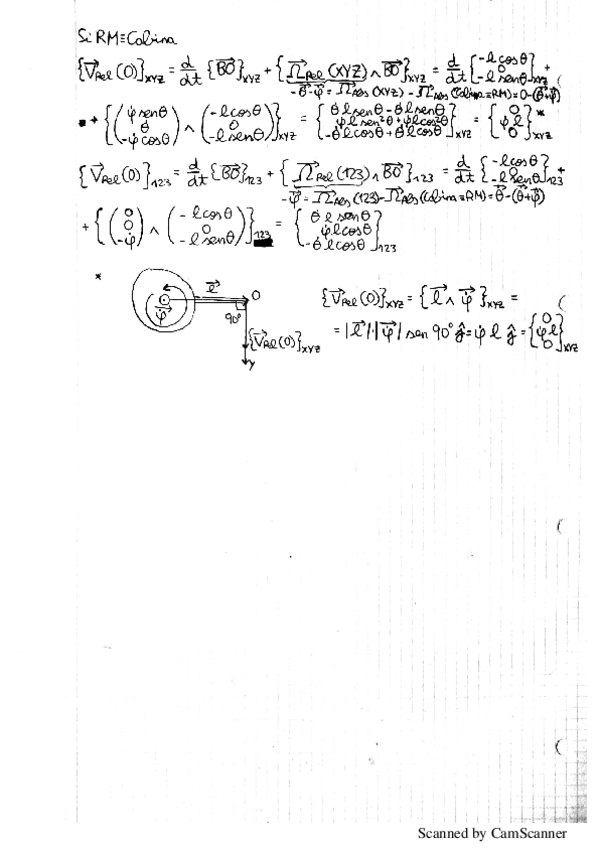 Si RM≡Cabina
{V⃗Rel(O)}XYZ = d/dt {B⃗O}XYZ + {Ω⃗Rel(XYZ) ∧ B⃗O}XYZ = d/dt {-l cosθ, 0, -l senθ}XYZ +
-θ⃗-φ⃗ = Ω⃗Abs(XYZ) - Ω⃗Abs(Cabina≡RM) = 0-(θ⃗+φ⃗)
+ {(φ̇ senθ, θ̇, -φ̇ cosθ) ∧ (-l cosθ, 0, -l senθ)}XYZ = {θ̇ l senθ - θ̇ l senθ, φ̇ l sen²θ + φ̇ l cos²θ, -θ̇ l cosθ + θ̇ l cosθ}XYZ = {0, φ̇ l, 0}XYZ *
{V⃗Rel(O)}123 = d/dt {B⃗O}123 + {Ω⃗Rel(123) ∧ B⃗O}123 = d/dt {-l cosθ, 0, -l senθ}123 +
-φ⃗ = Ω⃗Abs(123) - Ω⃗Abs(Cabina≡RM) = θ⃗-(θ⃗+φ⃗)
+ {(0, 0, -φ̇) ∧ (-l cosθ, 0, -l senθ)}123 = {θ̇ l senθ, φ̇ l cosθ, -θ̇ l cosθ}123
*
l⃗
O
φ⃗
90°
{V⃗Rel(O)}XYZ
Y
{V⃗Rel(O)}XYZ = {l⃗ ∧ φ⃗}XYZ =
= |l⃗|·|φ⃗| sen 90° ŷ = φ̇ l ŷ = {0, φ̇ l, 0}XYZ
Scanned by CamScanner